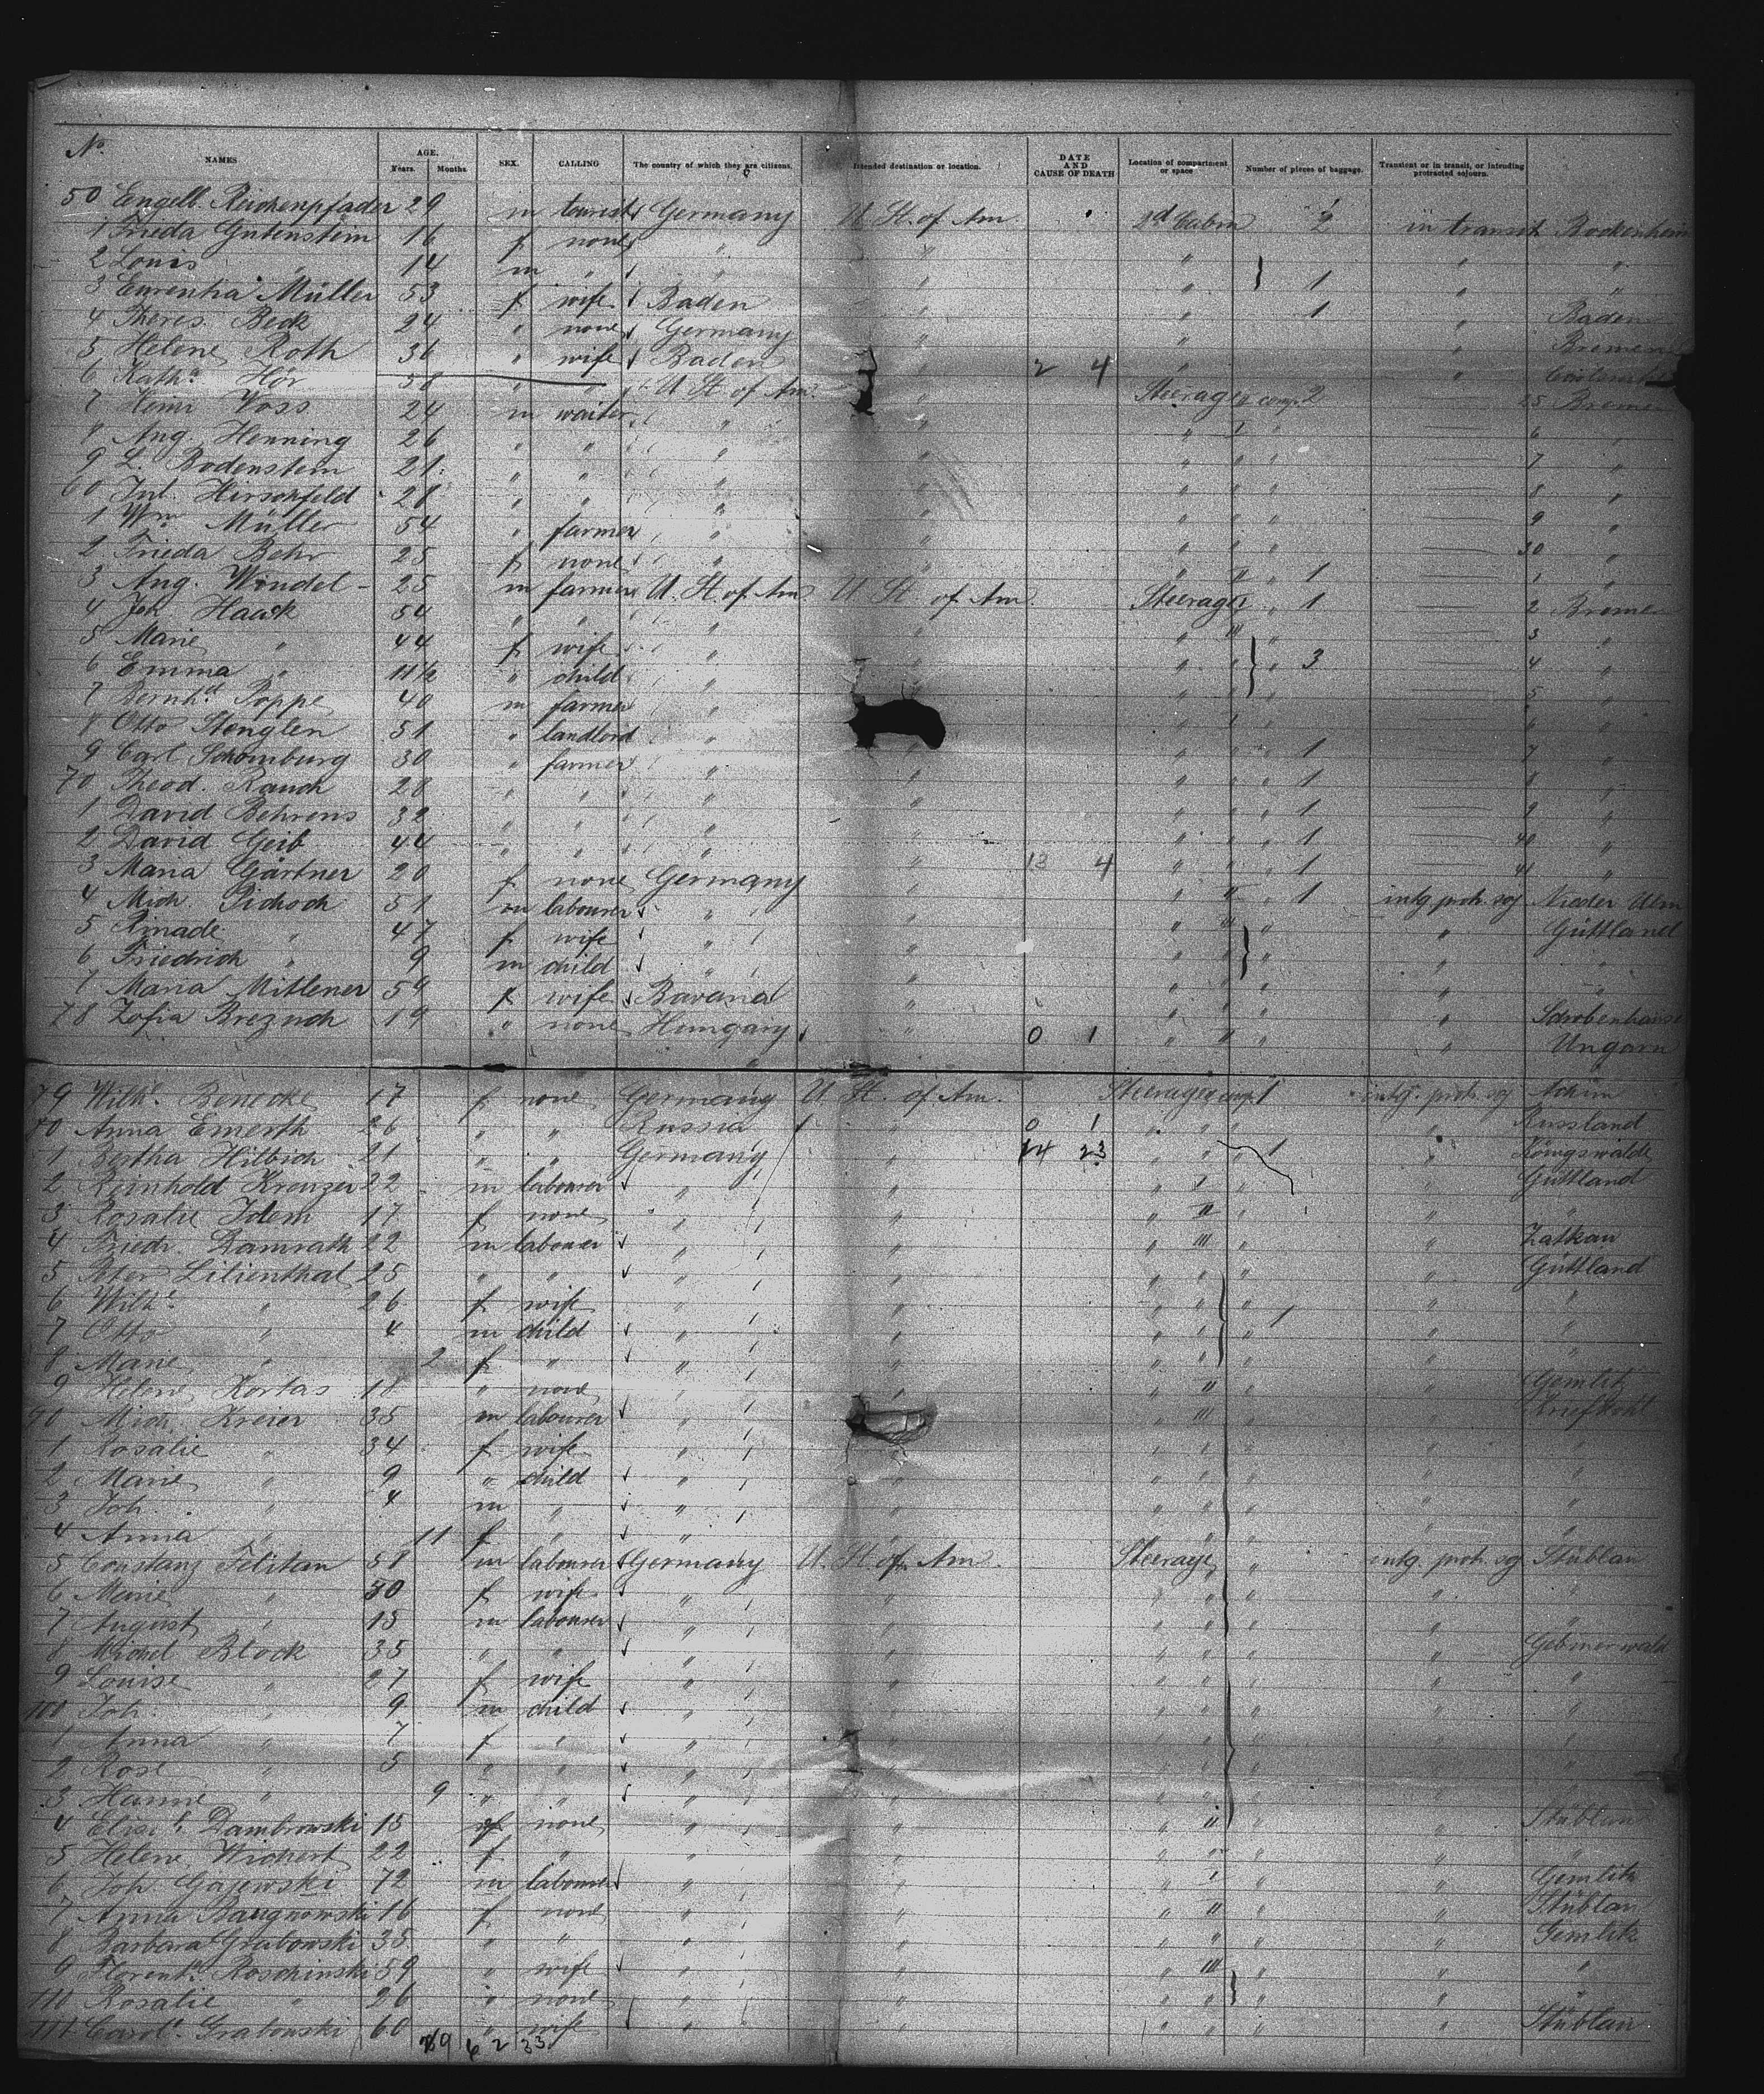 No. NAMES AGE. Years. Months. SEX. CALLING The country of which they are citizens. Intended destination or location. DATE AND CAUSE OF DEATH Location of compartment or space Number of pieces of baggage. Transient or in transit, or intruding protracted sojourn.
50 Engelb. Reichenpfader 29 m tourist Germany U. St. of Am. 2d Cabin 2 in transit Bockenheim
1 Frieda Gutenstein 16 f none " " " " "
2 Louis " 14 m " " " " 1 " "
3 Müller 53 f wife Baden " " 1 " Baden
4 Theres. Beck 24 " none Germany " " " Bremen
5 Helene Roth 36 " wife Baden " 2 4 " "
6 Kath. Hör 58 " " U. St. of Am. " Steerage comp. 2 25 Bremen
7 Heinr. Voss 24 m waiter " " " " 6 "
8 Aug. Henning 26 " " " " " " 7 "
9 L. Bodenstein 21 " " " " " " 8 "
60 Jul. Hirschfeld 28 " " " " " " 9 "
1 Wm. Müller 54 " farmer " " " " 30 "
2 Frieda Behr 25 f none " " " II " 1 1 "
3 Aug. Wendel 25 m farmer U. St. of Am. U. St. of Am. Steerage I " 1 2 Bremen
4 Joh. Haask 54 " " " " " III " 3 "
5 Marie " 44 f wife " " " " " 3 4 "
6 Emma " 11½ " child " " " " " 5 "
7 Bernhd. Poppe 40 m farmer " " " 6 "
8 Otto Stenglen 51 " landlord " " " " 1 7 "
9 Carl Schomburg 30 " farmer " " " " 1 8 "
70 Theod. Rauch 28 " " " " " " 1 9 "
1 David Behrens 32 " " " " " " 1 40 "
2 David Geib 44 " " " " 13 4 " " 1 41 "
3 Maria Gärtner 20 f none Germany " " II " 1 intg. protr. soj Nieder Ulm
4 Mich. Pichoch 51 m labourer " " " III " " Güttland
5 " 47 f wife " " " " " " "
6 Friedrich " 9 m child " " " " " " "
7 Maria Mitlener 59 f wife Bavaria " " " " "
78 Zofia Brezuch 19 " none Hungary " 0 1 " II " " Ungarn
79 Wilh. Benecke 17 f none Germany U. St. of Am. Steerage comp. 1 intg. protr. soj Achim
80 Anna Emerth 26 " " Russia " 0 1 " " " " Russland
1 Bertha Hilbich 21 " " Germany " 14 23 " " " 1 " Königswalde
2 Reinhold Kreuzer 22 m labourer " " " I " " Güttland
3 Rosalie Idem 17 f none " " " II " " "
4 Friedr. Damrath 22 m labourer " " " III " " Zatkau
5 Peter Lilienthal 25 " " " " " " " " Güttland
6 Wilh. " 26 f wife " " " " " 1 " "
7 Otto " 4 m child " " " " " " "
8 Marie " 2 f " " " " " " "
9 Helene Kortas 18 " none " " " II " " Gemlitz
90 Mich. Kreier 35 m labourer " " " III " " Kriefkohl
1 Rosalie " 34 f wife " " " " " " "
2 Marie " 9 " child " " " " " " "
3 Joh. " 4 m " " " " " " " "
4 Anna " 11 f " " " " " " " "
5 Constanz Felitan 58 m labourer Germany U. St. of Am. Steerage " intg. protr. soj Stüblau
6 Marie " 50 f wife " " " " " "
7 August " 13 m labourer " " " " " " "
8 Michel Block 35 " " " " " " " "
9 Louise " 27 f wife " " " " " " "
100 Joh. " 9 m child " " " " " " "
1 Anna " 7 f " " " " " " " "
2 Rose " 5 " " " " " " " " "
3 Hanne " 9 " " " " " " " " "
4 Elisabt. Dambrowski 15 f none " " " II " " Stüblau
5 Helene Wichert 22 f " " " " " " " "
6 Joh. Gajewski 72 m labourer " " " I " " Gemlitz
7 Anna 16 f none " " " II " " Stüblau
8 Barbara Grabowski 35 " " " " " " " " Gemlitz
9 Florent. Roschinski 59 " wife " " " III " " "
110 Rosalie " 26 " none " " " " " " "
111 Carol. Grabowski 60 " wife " " " " " " Stüblau